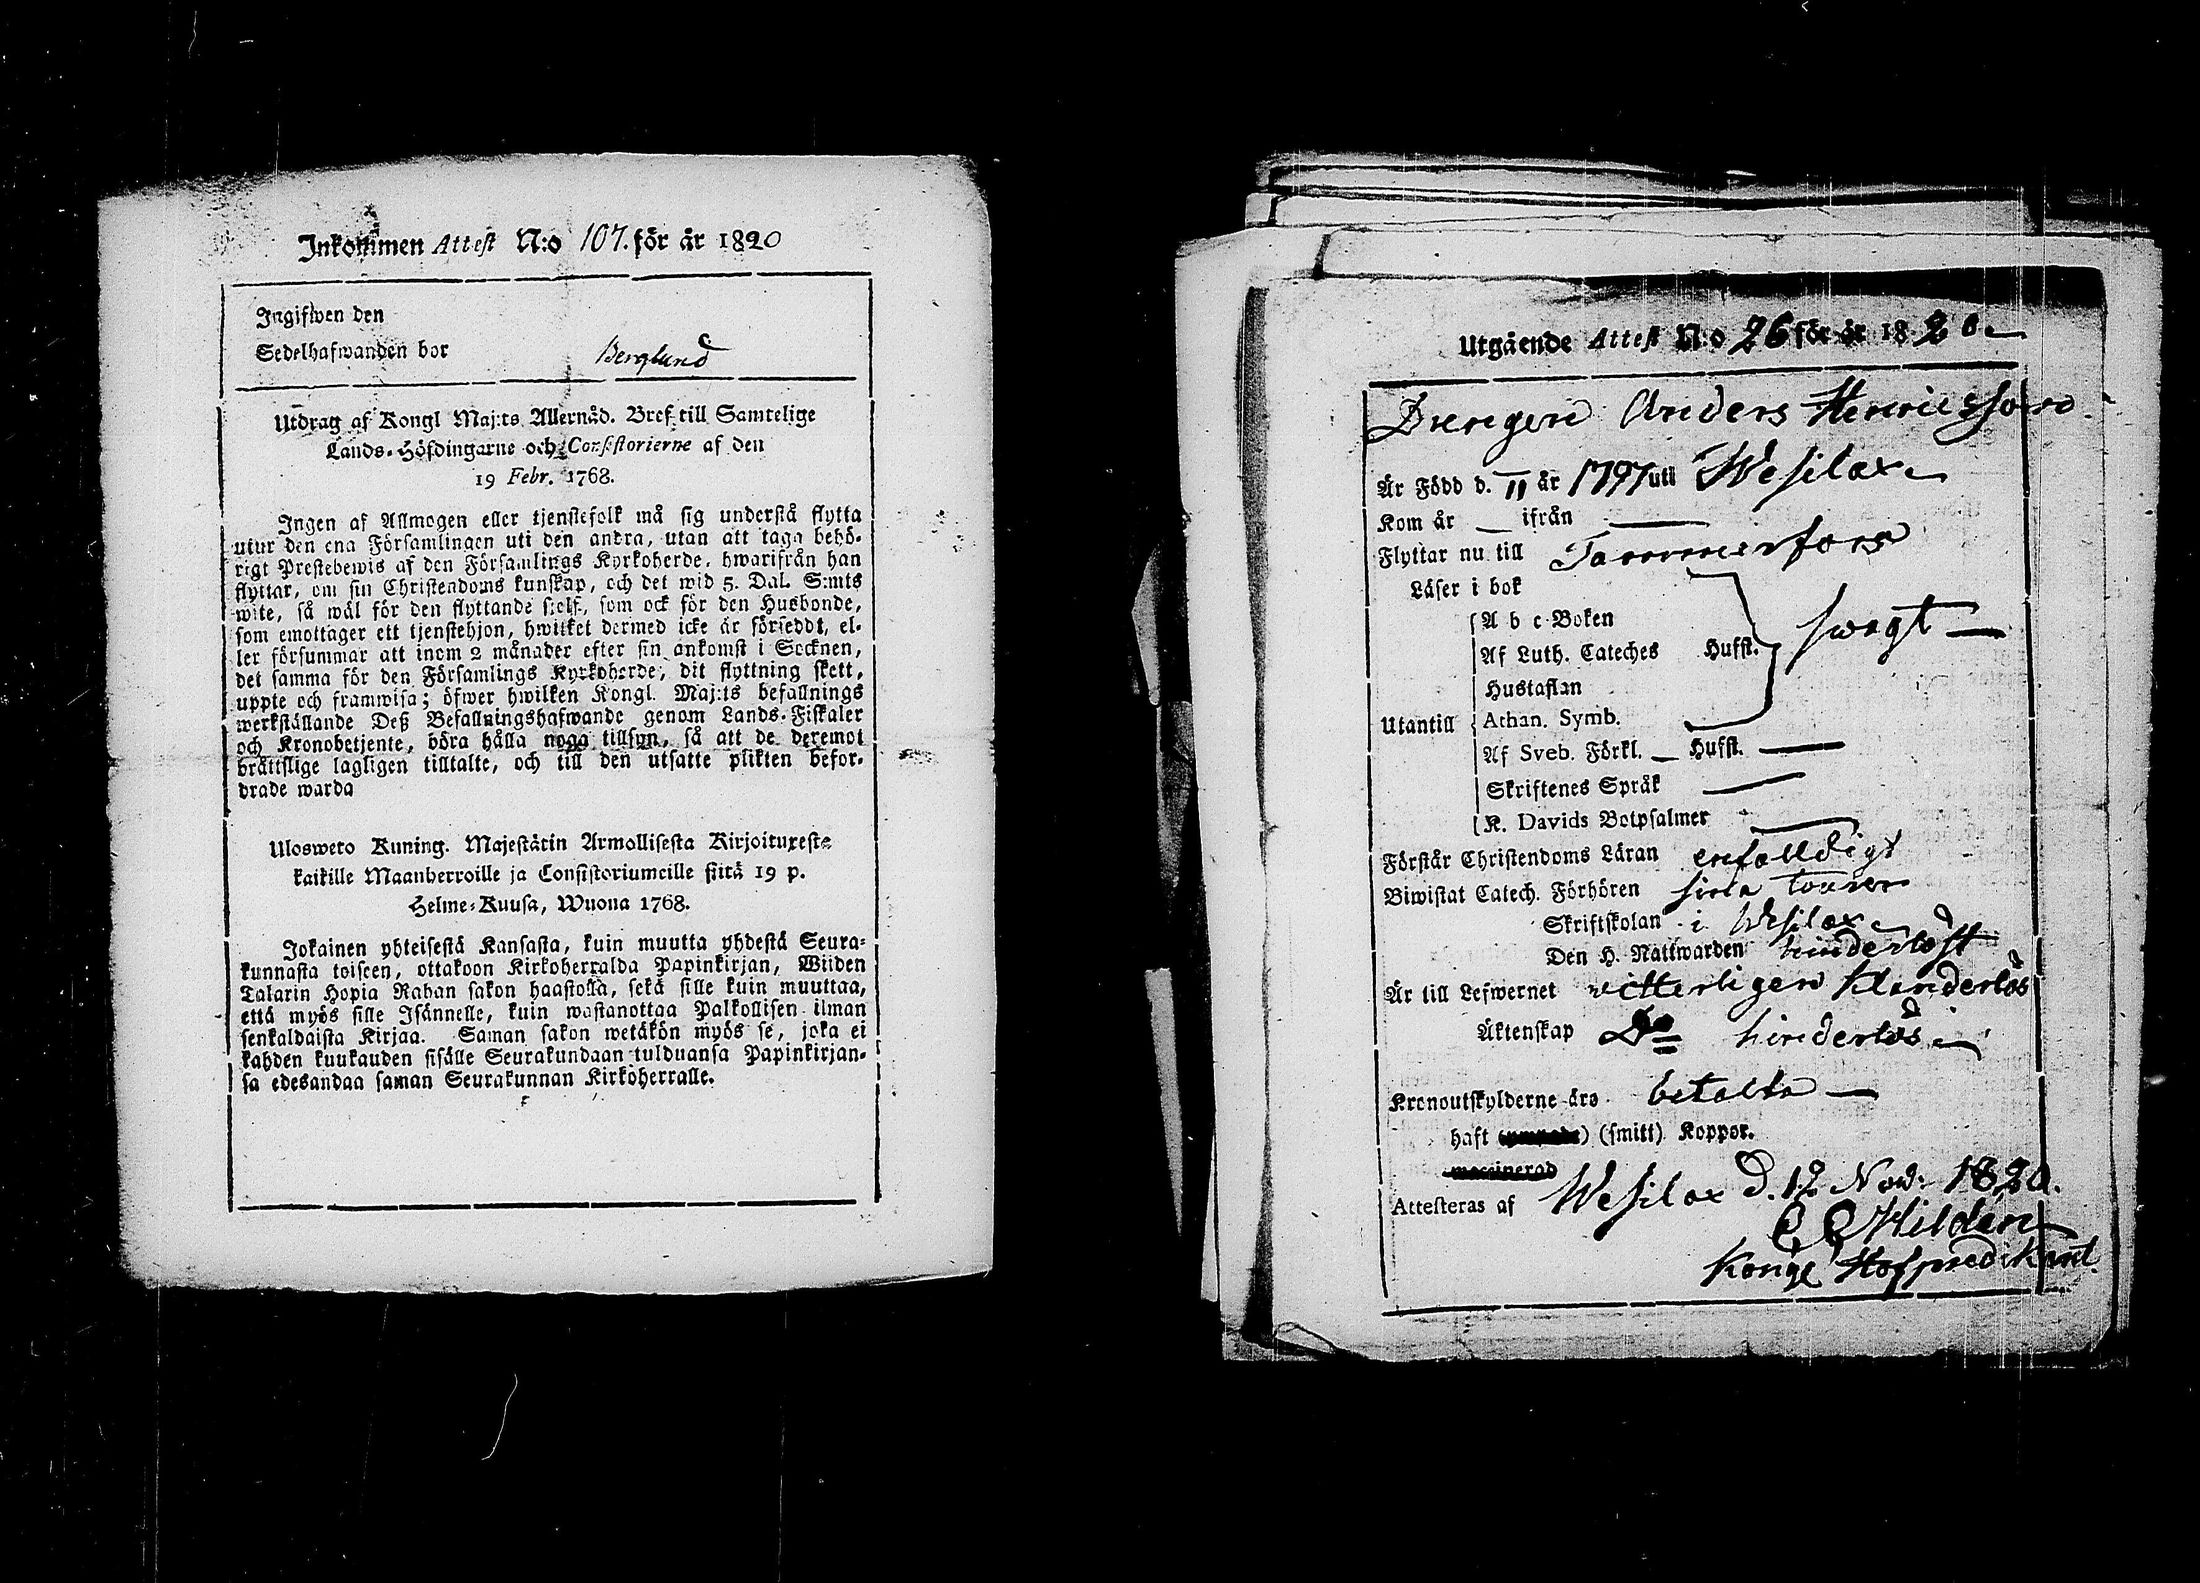 Inkommen Attest N:o 107. för år 1820
Ingifwen den
Sedelhafwanden bor Berglund
Utdrag af Kongl Maj:ts Allernåd. Bref till Samtelige
Lands-Höfdingarne och Consistorierne af den
19 Febr. 1768.
Ingen af Allmogen eller tjenstefolk må sig understå flytta
utur den ena Församlingen uti den andra, utan att taga behö-
rigt Prestebewis af den Församlings Kyrkoherde, hwarifrån han
flyttar, om sin Christendoms kunskap, och det wid 5. Dal. S:mts
wite, så wäl för den flyttande sjelf, som ock för den Husbonde,
som emottager ett tjenstehjon, hwilket dermed icke är försedt, el-
ler försummar att inom 2 månader efter sin ankomst i Socknen,
det samma för den Församlings Kyrkoherde, dit flyttning skett,
uppte och framwisa; öfwer hwilken Kongl. Maj:ts befallnings
werkställande Deß Befallningshafwande genom Lands-Fiskaler
och Kronobetjente, böra hålla noga tillsyn, så att de deremot
bråttslige lagligen tilltalte, och till den utsatte plikten befor-
drade warda
Ulosweto Kuning. Majestätin Armollisesta Kirjoituxesta
kaikille Maanherroille ja Consistoriumeille siitä 19 p.
Helme-Kuusa, Wuona 1768.
Jokainen yhteisestä Kansasta, kuin muutta yhdestä Seura-
kunnasta toiseen, ottakoon Kirkoherralda Papinkirjan, Wiiden
Talarin Hopia Rahan sakon haastolla, sekä sille kuin muuttaa,
että myös sille Isännelle, kuin wastanottaa Palkollisen ilman
senkaldaista Kirjaa. Saman sakon wetäkön myös se, joka ei
kahden kuukauden sisälle Seurakundaan tulduansa Papinkirjan-
sa edesandaa saman Seurakunnan Kirkoherralle.
Utgående Attest N:o 26 för år 1820
Drengen Anders Henricsson
Är Född d. 11 år 1797 uti Wesilax
Kom år — ifrån —
Flyttar nu till Tammerfors
Läser i bok
A b c-Boken
Af Luth. Cateches Hufst. swagt —
Hustaflan
Utantill Athan. Symb.
Af Sveb. Förkl. — Hufst. —
Skriftenes Språk —
K. Davids Botpsalmer —
Förstår Christendoms Läran enfalldigt
Biwistat Catech. Förhören sina tourer
Skriftskolan i Wesilax
Den H. Nattwarden hinderlöst
Är till Lefwernet witterligen hinderlös
Äktenskap Do hinderlös
Kronoutskylderne äro betalta —
haft (smitt) Koppor.
maccinerad
Attesteras af Wesilax d. 12 Nov. 1820.
C C Hildén
Kongl Hofpredikant.